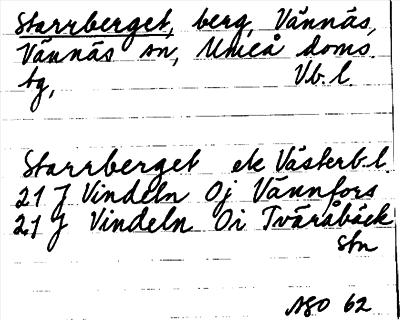 Starrberget, berg, Vännäs,
Vännäs sn, Umeå doms.
tg, Vb. l.
Starrberget ek Västerb. l.
21 J Vindeln 0j Vännfors
21 J Vindeln 0i Tväråbäck
stn
NSO 62